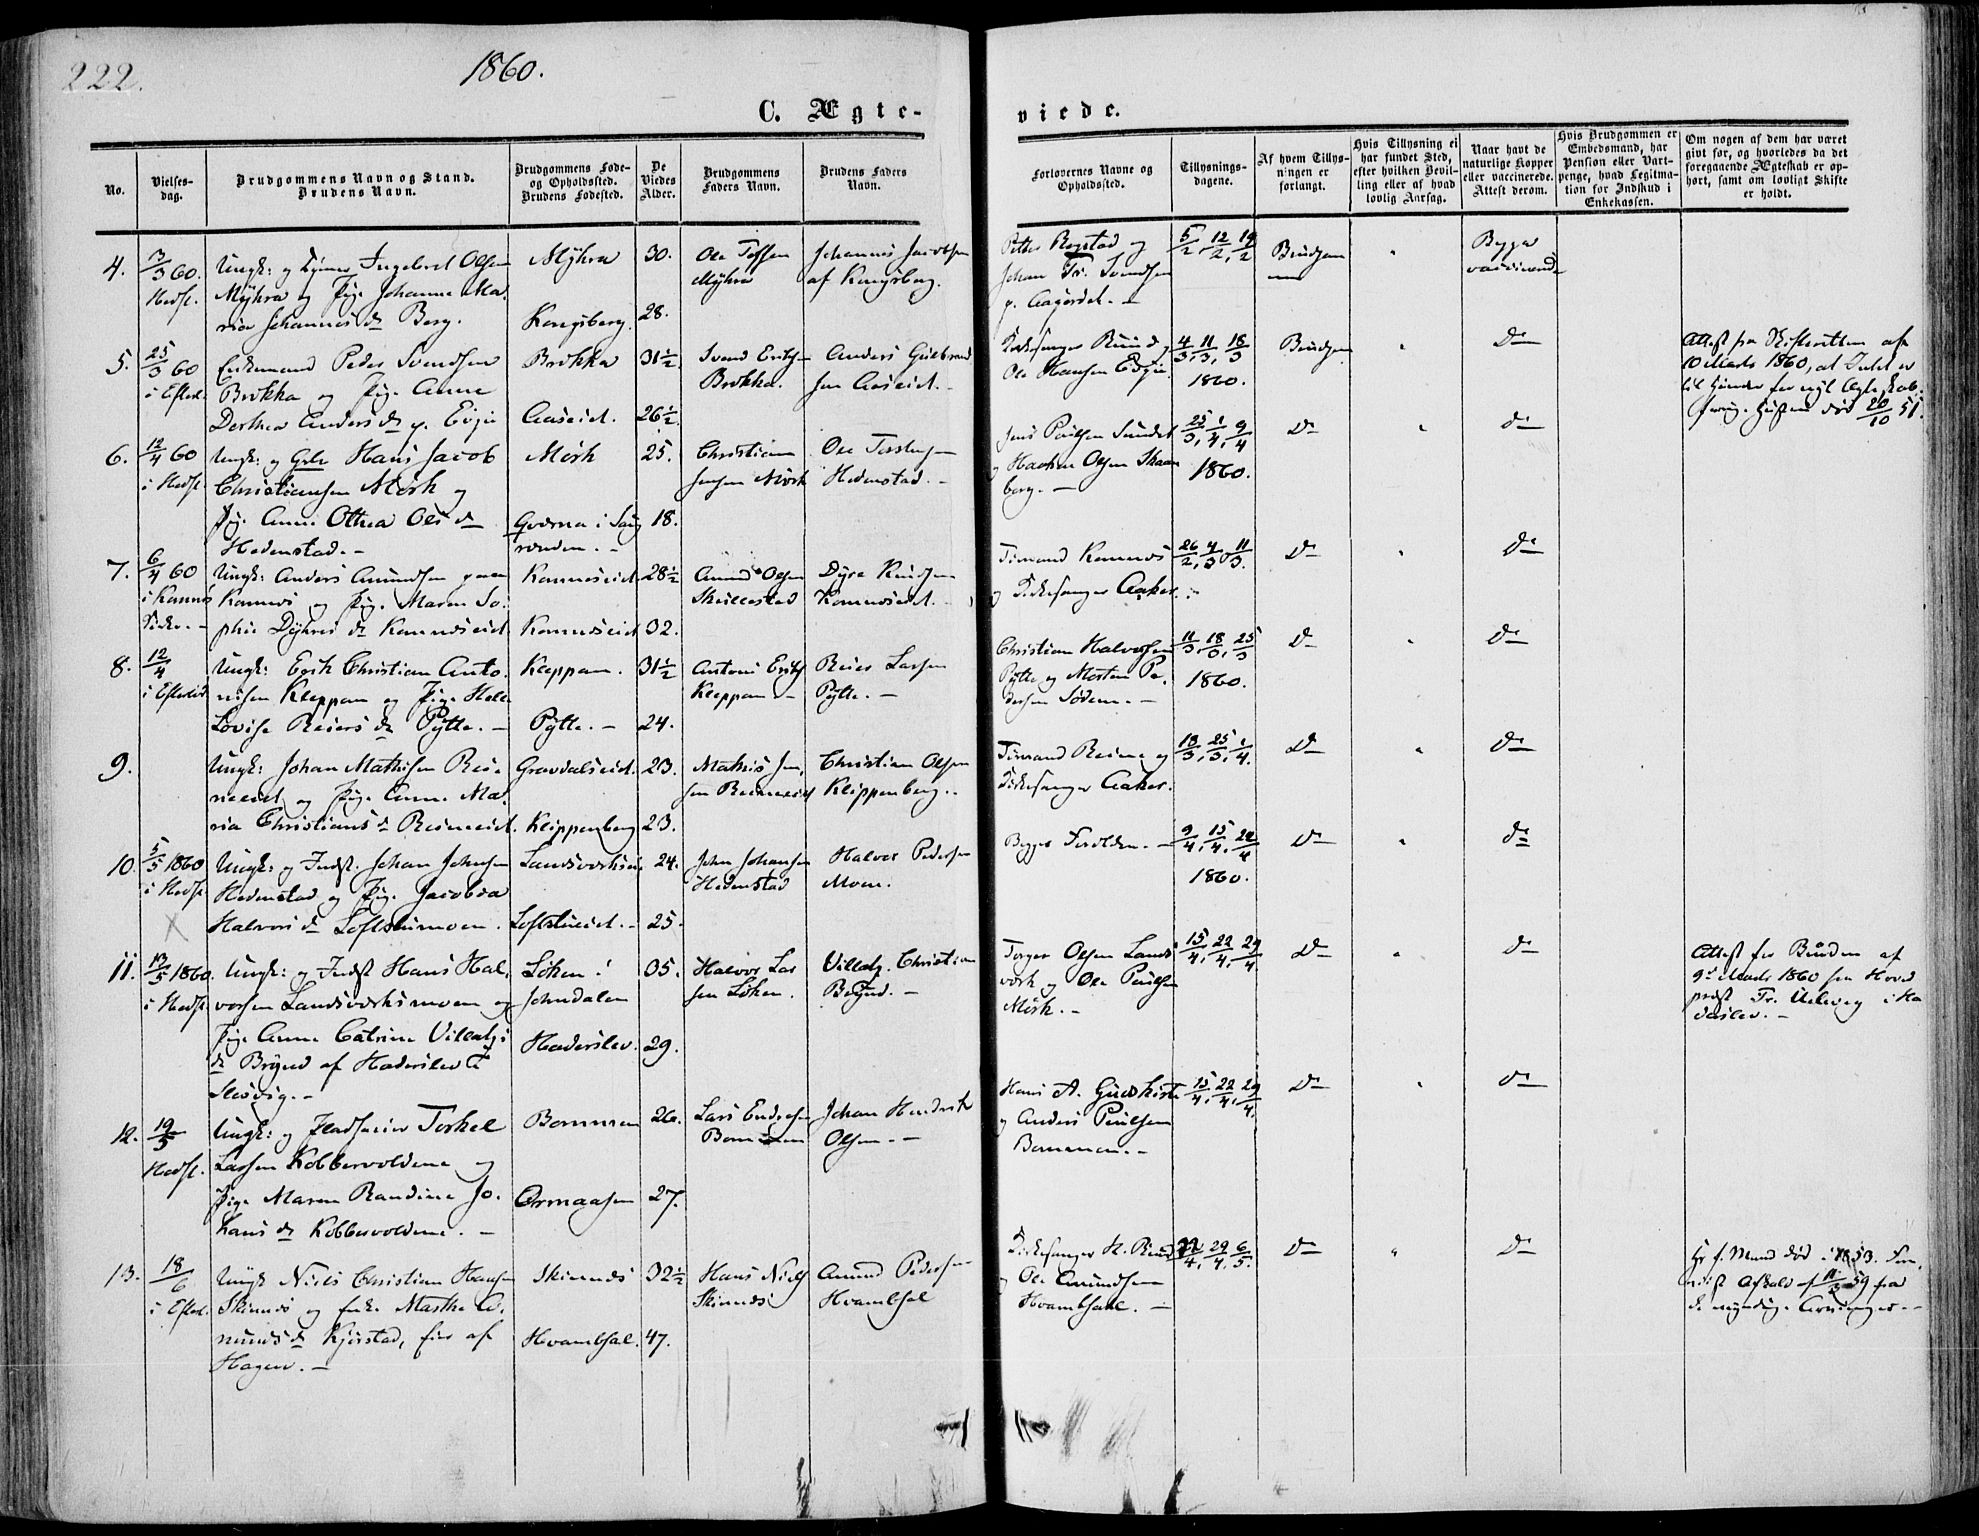 222.
1860.
C. Ægte-
viede.
No.
Vielses-
dag.
Brudgommens Navn og Stand.
Brudens Navn.
Brudgommens Føde-
og Opholdssted.
Brudens Fødested.
De
Viedes
Alder.
Brudgommens
Faders Navn.
Brudens Faders
Navn.
Forlovernes Navne og
Opholdssted.
Tillysnings-
dagene.
Af hvem Tillys-
ningen er
forlangt.
Hvis Tillysning ei
har fundet Sted,
efter hvilken Bevil-
ling eller af hvad
lovlig Aarsag.
Naar havt de
naturlige Kopper
eller vaccinerede.
Attest derom.
Hvis Brudgommen er
Embedsmand, har
Pension eller Vart-
penge, hvad Legitima-
tion for Indskud i
Enkekassen.
Om nogen af dem har været
givt før, og hvorledes da det
foregaaende Ægteskab er op-
hørt, samt om lovligt Skifte
er holdt.
4. 3/3 60.
Hedst.
Ungk: og Ingebret Olsen
Myhra og Pige Johanne Ma-
ria Johannes d. Berg.
Myhra
Kongsberg.
30.
28.
Ole
Myhra
Johannes Jacobsen
af Kongsberg.
Rogstad og
Johan Fr. Svendsen
5/2, 12/2, 19/2
Brudgom
Begge
vaccinerede
5. 25/3 60
i Efted.
Enkemand Peder Svendsen
Brokka og Pige Anne
Dorthea Anders d. p. Evju
Brokka
Aaseid.
31½
26½
Svend Eriksen
Brokka.
Anders Gulbrand
sen Aaseid.
Kirkesanger Ruud og
Ole Hansen Evju
4/3, 11/3, 18/3
1860.
Brudgom
do
Attest fra Skifteretten af
10 Marts 1860, at Intet er
til Hinder for nyt Ægteskab.
Hustru død 20/10 51.
6. 12/4 60
i Hedst.
Ungk: og Hans Jacob
Christiansen Mørk og
Pige Anne Othea Ols d.
Hedenstad.
Mørk
i Sau
25.
18.
Christian
Jensen Mørk
Ole
Hedenstad.
Jens Poulsen Sundet
og Olsen
berg.
25/3, 1/4, 9/4
1860.
do
do
7. 6/4 60
i Komnes
Kirke.
Ungk: Anders Amundsen
Komnes og Pige Maren So-
phie Dyhres d. Komnæseid
Komnæseid
Komnæseid
28½
32.
Amund Olsen
Skullestad
Dyre Knudsen
Komnæseid.
Komnæs
og Kirkesanger Aaker.
26/2, 4/3, 11/3.
do
do
8. 12/4
i Efteløt
Ungk: Erik Christian Anto-
nisen Kleppan og Pige Hel.
Lovise Reiers d. Pytte.
Kleppan.
Pytte.
31½
24.
Antoni Eriks
Kleppan
Reier Larsen
Pytte.
Christian Halvorsen
Pytte og Morten Pe-
dersen Sødem.
11/3, 18/3, 25/3
1860.
do
do
9.
Ungk: Johan Mathisen
og Pige Anne Ma-
ria Christians d.
Gravdalseid.
Klippenberg
23.
23.
Mathis Jen-
sen
Christian Olsen
Klippenberg.
og
Kirkesanger Aaker.
18/3, 25/3, 1/4.
do
do
10. 5/5 1860
i Hedst.
X
Ungk: og Indst. Johan Johnsen
Hedenstad og Pige Jacobea
Halvors d. Loftstuemoen.
Loftstueid.
24.
25.
John Johansen
Hedenstad
Halvor Pedersen
Moen.
Begge
9/4, 15/4, 22/4
1860.
do
do
11. 13/5 1860.
i Hedst.
Ungk: og Indst Hans Hal-
vorsen Landsværksmoen og
Pige Anne Catrine
af Haderslev
Slesvig.
Løken i
Jondalen
Haderslev.
35.
29.
Halvor Lar
sen Løken.
Christian
Torger Olsen Lands
værk og Ole Poulsen
Mørk.
15/4, 22/4, 29/4
do
do
Attest for Bruden af
9de Marts 1860 fra Hoved
præst Fr. i Ha
derslev.
12. 19/5
Hedst.
Ungk: og Torkel
Larsen Kobbervoldene og
Pige Maren Randine Jo-
hans d. Kobbervoldene.
Bommen
Ormaasen
26.
27.
Lars
Bommen
Johan Henrik
Olsen.
Hans A.
og Anders Poulsen
Bommen.
15/4, 22/4, 29/4.
do
do
13. 18/6
i Efted.
Ungk Niels Christian Hansen
Skinnes og Enke Marthe A-
munds d. Kjørstad, før af
Hagen.
Skinnes
Hvambsal.
32½
47.
Hans Niels
Skinnes
Amund Pedersen
Hvambsal
Kirkesanger H. Ruud
og Ole Amundsen
Hvambsahl.
22/4, 29/4, 6/5.
do
do
f. Mand død i 1853.
Afkald 59 fra
de myndige Arvinger.